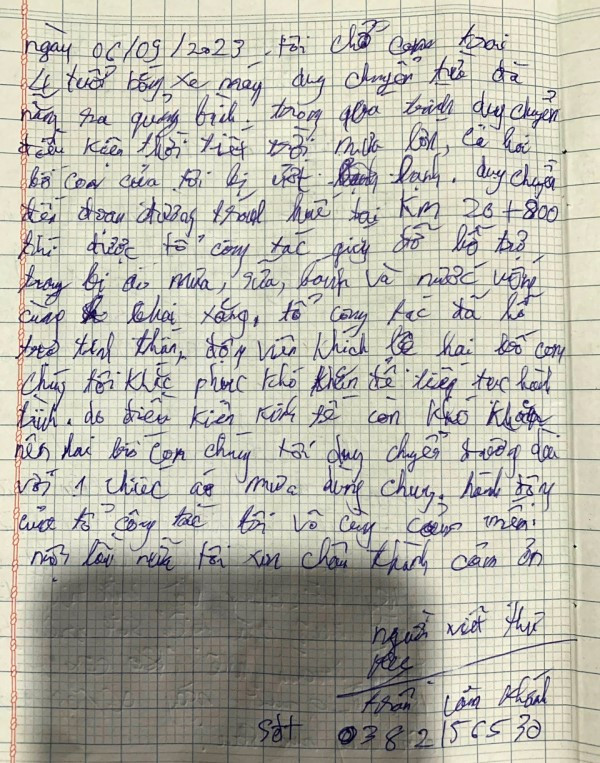 ngày 06/09/2023. tôi chở con trai
4 tuổi bằng xe máy duy chuyển từ đà
nẵng ra quảng bình. trong qua trình duy chuyển
điều kiện thời tiết trời mưa lớn, cả hai
bố con của tôi bị ướt lạnh. duy chuyển
đến đoạn đường tránh huế tại Km 26+800
thì được tổ công tác giúp đỡ hỗ trợ
trang bị áo mưa, sữa, banh và nước uống
cùng khai xăng. tổ công tác đã hỗ
trợ tinh thần, động viên khích lệ hai bố con
chúng tôi khắc phục khó khăn để tiếp tục hành
trình. do điều kiện kinh tế còn khó khăn
nên hai bố con chúng tôi duy chuyển đường dài
với 1 chiếc áo mưa dùng chung. hành động
của tổ công tác tôi vô cùng cảm mến.
một lần nữa tôi xin chân thành cảm ơn
người viết thư
trần văn
sđt 0382156530